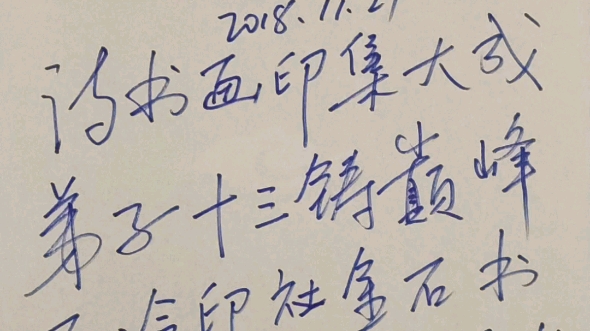 2018.11.21
诗书画印集大成
弟子十三铸巅峰
西泠印社金石书